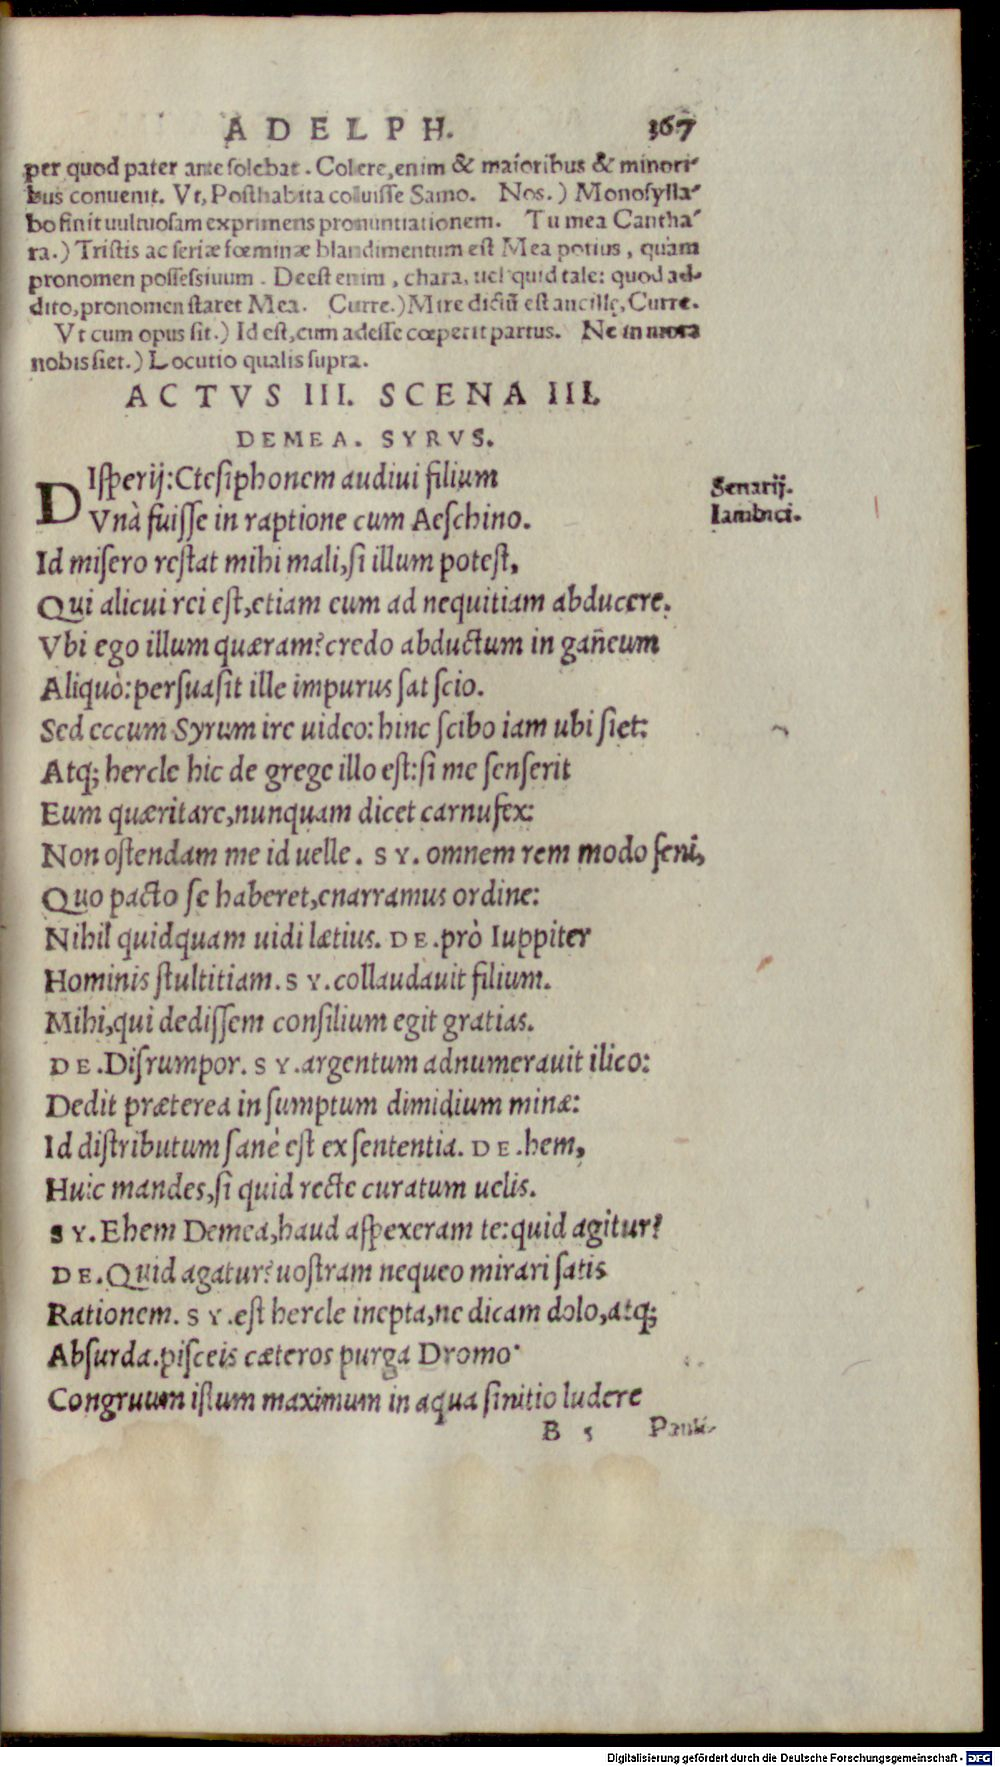 ADELPH. 367
per quod pater ante solebat. Colere, enim & maioribus & minori-
bus conuenit. Vt, Posthabita coluisse Samo. Nos.) Monosylla-
bo finit uultuosam exprimens pronuntiationem. Tu mea Cantha-
ra.) Tristis ac seriæ fœminæ blandimentum est Mea potius, quàm
pronomen possessiuum. Deest enim, chara, uel quid tale: quod ad-
dito, pronomen staret Mea. Curre.) Mire dictũ est ancillę, Curre.
Vt cum opus sit.) Id est, cum adesse cœperit partus. Ne in mora
nobis siet.) Locutio qualis supra.
ACTVS III. SCENA III.
DEMEA. SYRVS.
DIsperij: Ctesiphonem audiui filium
Vnà fuisse in raptione cum Aeschino.
Senarij.
Iambici.
Id misero restat mihi mali, si illum potest,
Qui alicui rei est, etiam eum ad nequitiam abducere.
Vbi ego illum quæram? credo abductum in gañeum
Aliquò: persuasit ille impurus sat scio.
Sed eccum Syrum ire uideo: hinc scibo iam ubi siet:
Atq; hercle hic de grege illo est: si me senserit
Eum quæritare, nunquam dicet carnufex:
Non ostendam me id uelle. SY. omnem rem modo seni,
Quo pacto se haberet, enarramus ordine:
Nihil quidquam uidi lætius. DE. prò Iuppiter
Hominis stultitiam. SY. collaudauit filium.
Mihi, qui dedissem consilium egit gratias.
DE. Disrumpor. SY. argentum adnumerauit ilico:
Dedit præterea in sumptum dimidium minæ:
Id distributum sanè est ex sententia. DE. hem,
Huic mandes, si quid recte curatum uelis.
SY. Ehem Demea, haud aspexeram te: quid agitur?
DE. Quid agatur? uostram nequeo mirari satis
Rationem. SY. est hercle inepta, ne dicam dolo, atq;
Absurda. pisceis cæteros purga Dromo.
Congruum istum maximum in aqua sinitio ludere
B 5 Pauli-
Digitalisierung gefördert durch die Deutsche Forschungsgemeinschaft - DFG